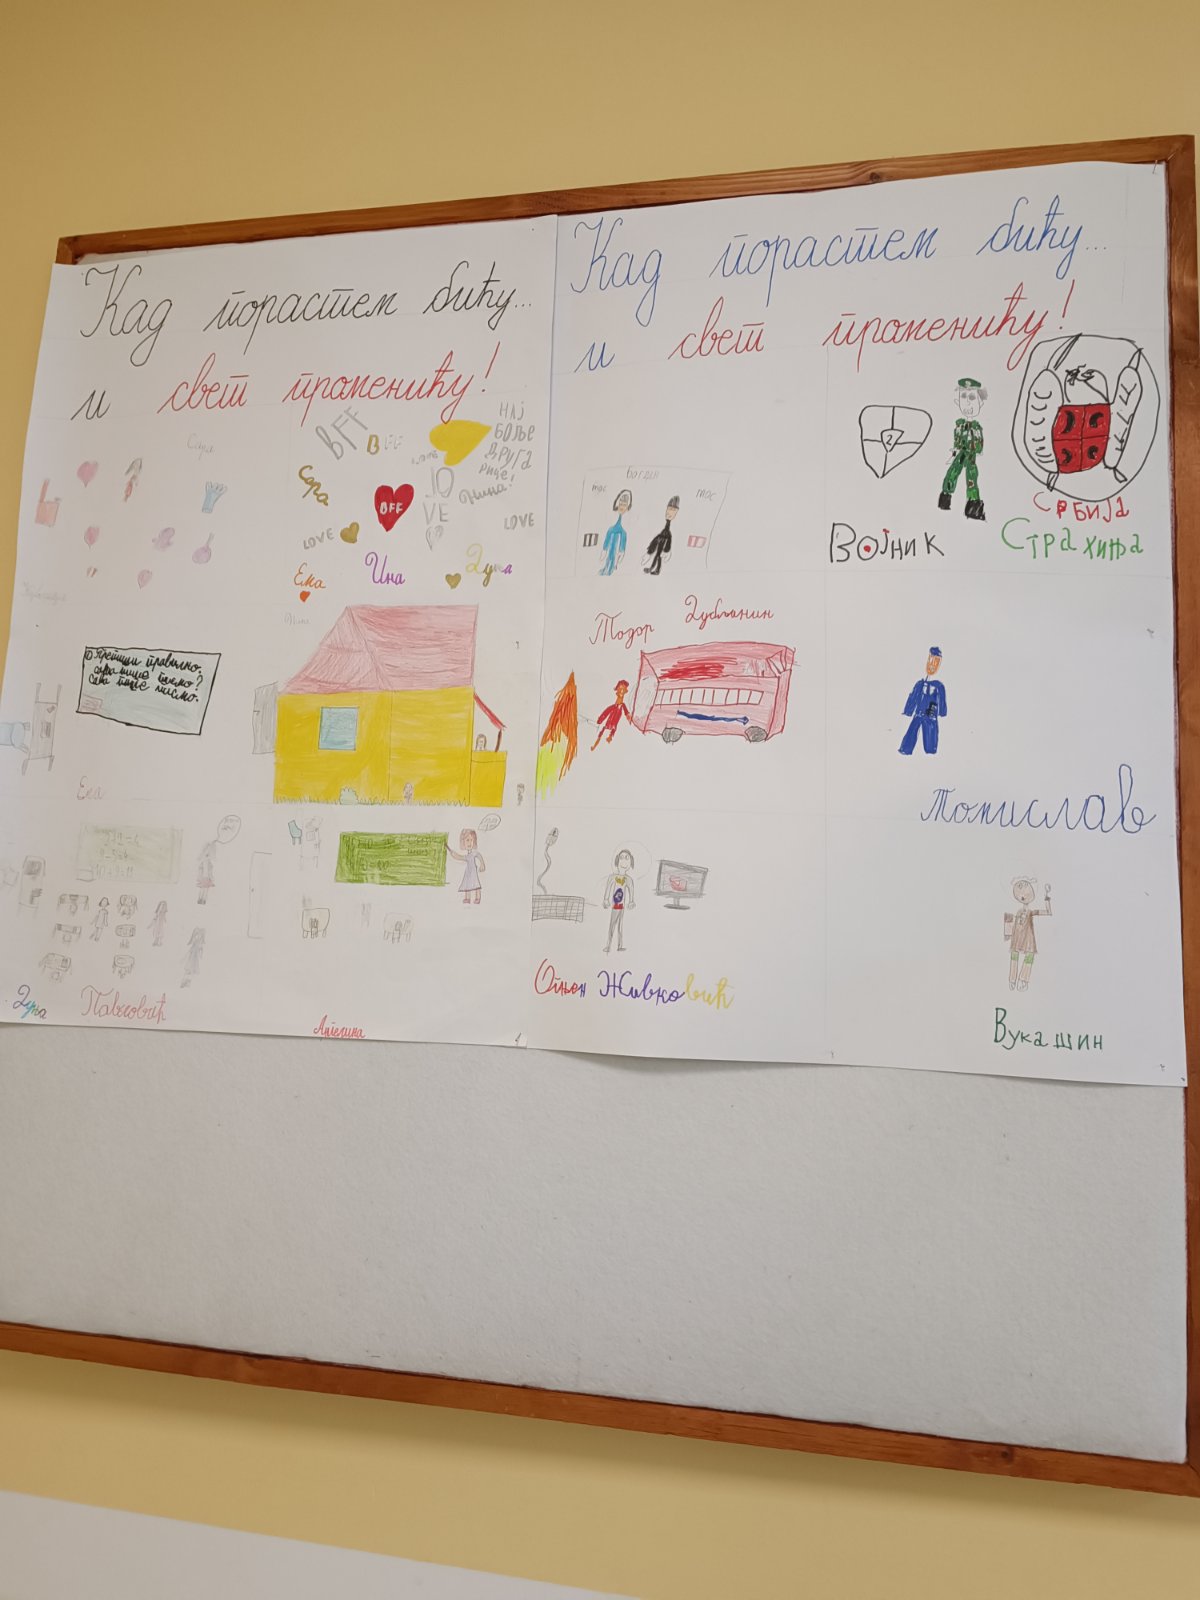 Кад порастем бићу...
и свет променићу!
Сара
BFF
BFF
НАЈ
БОЉЕ
ДРУГА
рице!
Нина!
Сара
BFF
LO
VE
LOVE
LOVE
Ема
Ина
Дуња
Препиши правилно.
сара пише писмо?
Сара пише писмо.
Ема
Дуња
Павловић
Ангелина
Кад порастем бићу...
и свет променићу!
Богдан
2
ВОЈНИК
СРБИЈА
СТРАХИЊА
Тодор
Дубљанин
Томислав
Огњен Живковић
Вукашин